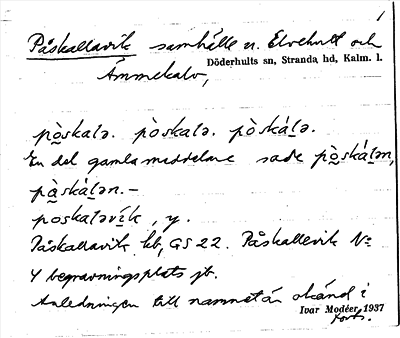 1
Påskallavik samhälle n. Elvehult och
Döderhults sn, Stranda hd, Kalm. l.
Ämmekalv,
pò̤skalə. pòskalə. pò̤skáḷə.
En del gamla meddelare sade pò̤skáḷən,
pà̤skáḷən.-
poskaləvík, y.
Påskallavik kb, GS 22. Påskallevik N:
4 begravningsplats jb.
Anledningen till namnet är okänd i
Ivar Modéer 1937
forts.